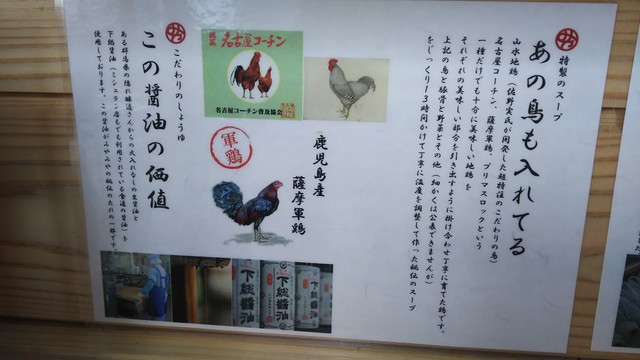 特製のスープ
あの鳥も入れてる
山水地鶏(佐野実氏が開発した超特注のこだわりの鳥)
名古屋コーチン、薩摩軍鶏、プリマスロックという
一種だけでも十分に美味しい地鶏を
それぞれの美味しい部分を引き出すように掛け合わせ丁寧に育てた鶏です。
上記の鳥と豚骨と野菜とその他(細かくは公表できませんが)
をじっくり13時間かけて丁寧に温度を調整して作った秘伝のスープ
名古屋コーチン
名古屋コーチン普及協会
軍鶏
鹿児島産
薩摩軍鶏
こだわりのしょうゆ
この醤油の価値
ある群馬県の隠れ醸造さんからの火入れなしの生醤油と
下総醤油(ミシュラン店もでも利用されている普通の醤油)を
使用しております。この醤油がみやみやの秘伝のたれの一部です。
下総醤油
下総醤油
下総醤油